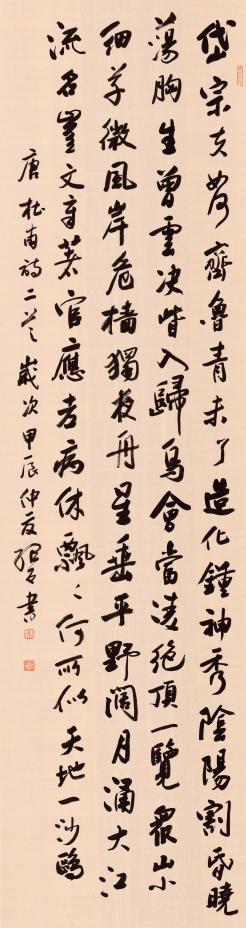 岱宗夫如何齊魯青未了造化鍾神秀陰陽割昏曉
蕩胸生曾雲決眥入歸鳥會當凌絕頂一覽眾山小
細草微風岸危檣獨夜舟星垂平野闊月涌大江
流名豈文章著官應老病休飄〻何所似天地一沙鷗
唐杜甫詩二首歲次甲辰仲夏 書